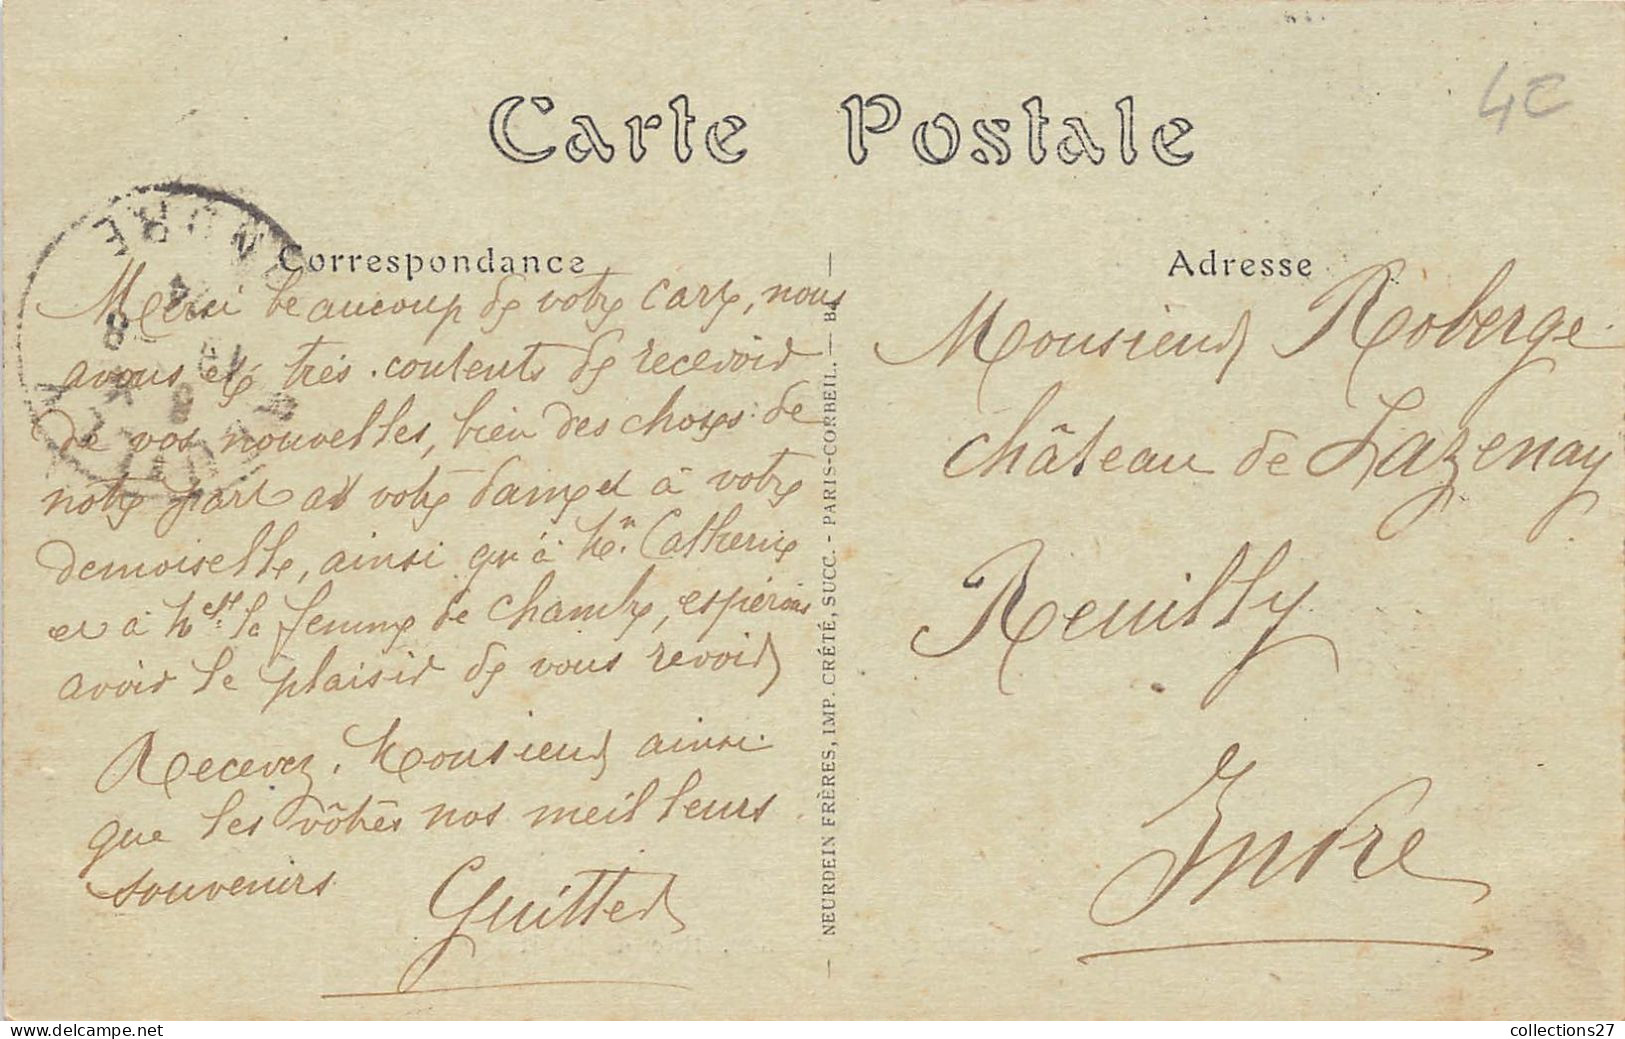 Carte Postale
4C
Correspondance
Merci beaucoup de votre carte, nous
avons été très contents de recevoir
de vos nouvelles, bien des choses de
notre part à votre dame et à votre
demoiselle, ainsi qu'à Catherine
et à Melle la femme de chambre, espérons
avoir le plaisir de vous revoir
Recevez, Monsieur ainsi
que les vôtres nos meilleurs
souvenirs
Guitter
NEURDEIN FRÈRES, IMP. CRÉTÉ, SUCC. - PARIS-CORBEIL.
Adresse
Monsieur Roberge
château de Lazenay
Reuilly
Indre
INDRE
REUILLY
collections27